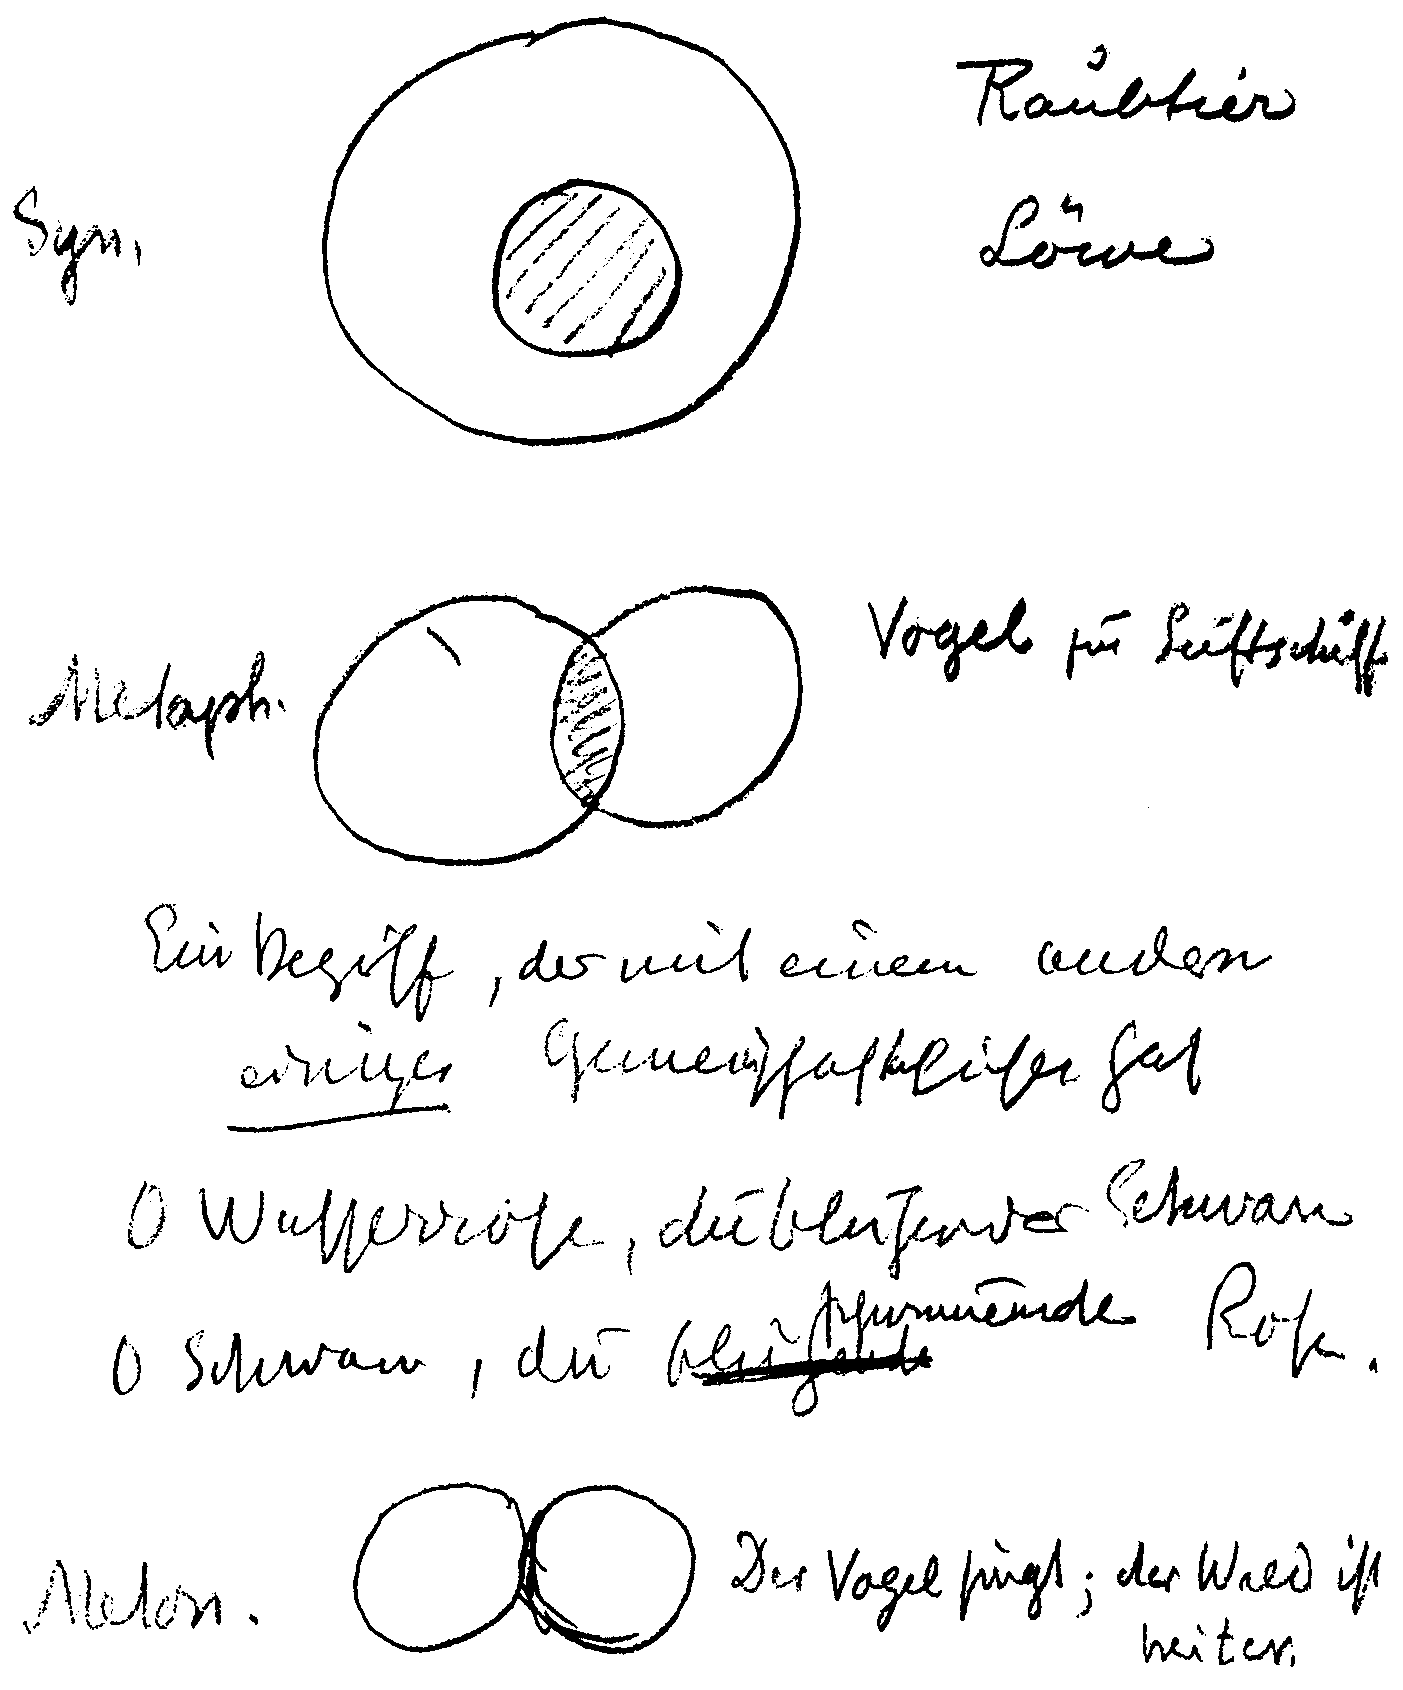 Raubtier
Syn.
Löwe
Vogel für Luftschiff
Metaph.
Ein Begriff, der mit einem andern
einiges Gemeinschaftliches hat
O Wasserrose, du blühender Schwan
O Schwan, du blühende schwimmende Rose.
Meton.
Der Vogel singt; der Wald ist
heiter.